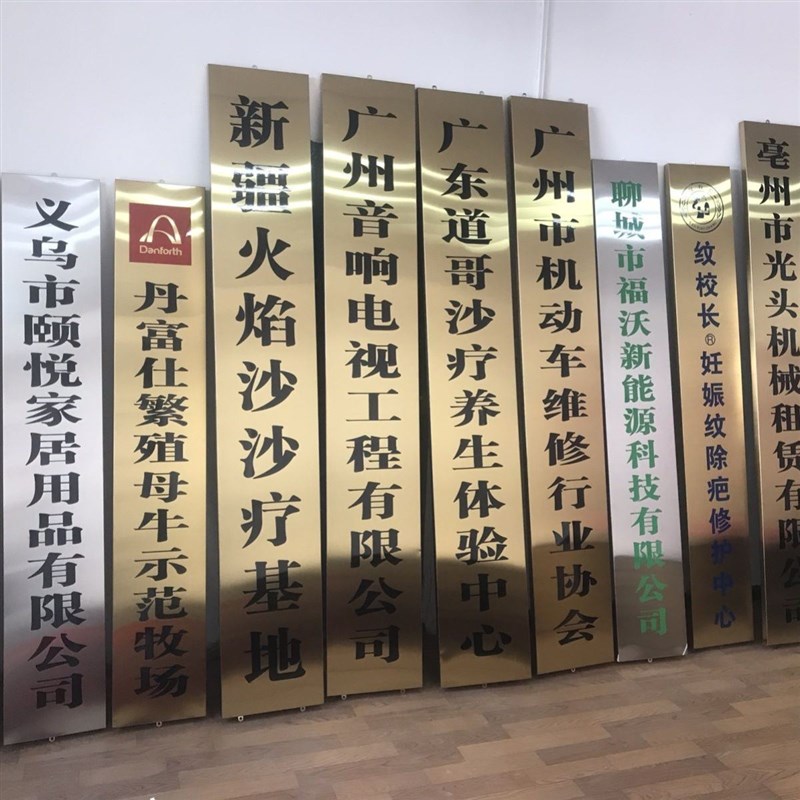 义乌市颐悦家居用品有限公司
Danforth
丹富仕繁殖母牛示范牧场
新疆火焰沙沙疗基地
广州音响电视工程有限公司
广东道哥沙疗养生体验中心
广州市机动车维修行业协会
聊城市福沃新能源科技有限公司
纹校长®妊娠纹除疤修护中心
亳州市光头机械租赁有限公司